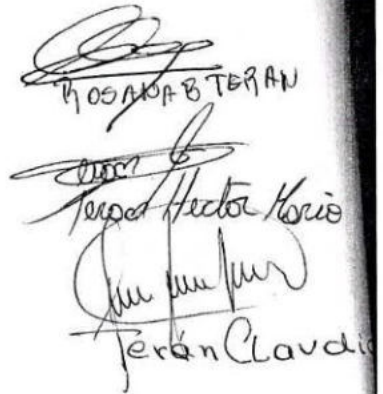 ROSANA B TERAN
Teran Hector Mario
Terán Claudi